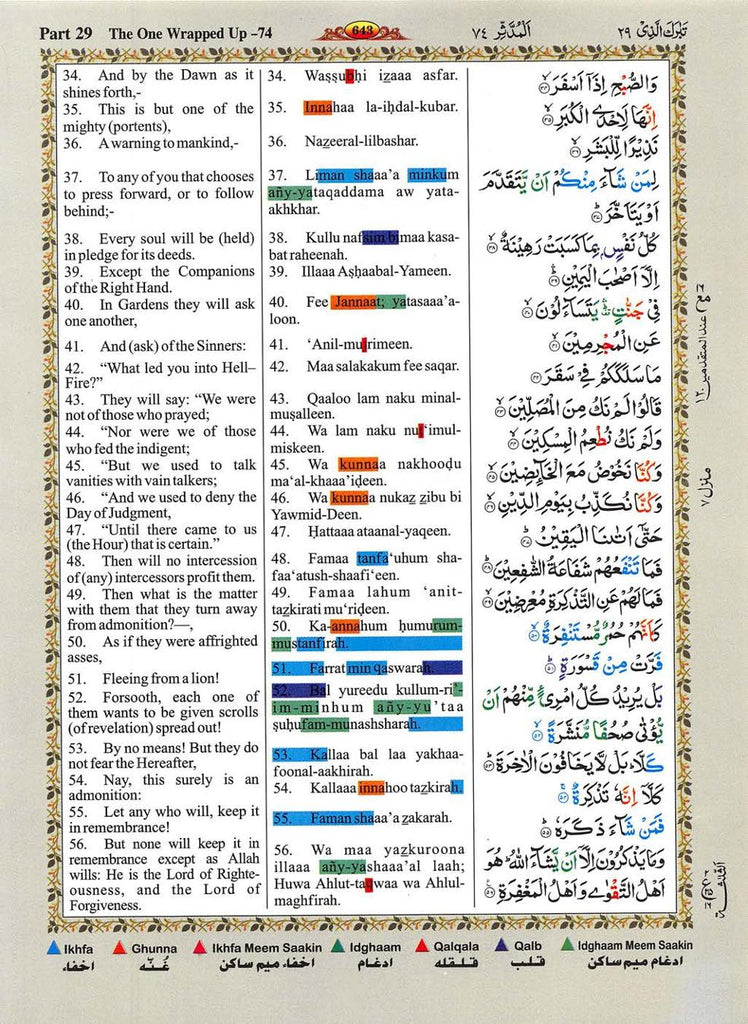 Part 29 The One Wrapped Up -74
643
اَلْمُدَّثِّر ٧٤
تَبٰرَكَ الَّذِىْ ٢٩
34. And by the Dawn as it
shines forth,-
35. This is but one of the
mighty (portents),
36. A warning to mankind,-
37. To any of you that chooses
to press forward, or to follow
behind;-
38. Every soul will be (held)
in pledge for its deeds.
39. Except the Companions
of the Right Hand.
40. In Gardens they will ask
one another,
41. And (ask) of the Sinners:
42. “What led you into Hell–
Fire?”
43. They will say: “We were
not of those who prayed;
44. “Nor were we of those
who fed the indigent;
45. “But we used to talk
vanities with vain talkers;
46. “And we used to deny the
Day of Judgment,
47. “Until there came to us
(the Hour) that is certain.”
48. Then will no intercession
of (any) intercessors profit them.
49. Then what is the matter
with them that they turn away
from admonition?—,
50. As if they were affrighted
asses,
51. Fleeing from a lion!
52. Forsooth, each one of
them wants to be given scrolls
(of revelation) spread out!
53. By no means! But they do
not fear the Hereafter,
54. Nay, this surely is an
admonition:
55. Let any who will, keep it
in remembrance!
56. But none will keep it in
remembrance except as Allah
wills: He is the Lord of Righte-
ousness, and the Lord of
Forgiveness.
34. Waṣṣubḥi iẕaaa asfar.
35. Innahaa la-iḥdal-kubar.
36. Naẕeeral-lilbashar.
37. Liman shaaa’a minkum
añy-yataqaddama aw yata-
akhkhar.
38. Kullu nafsim bimaa kasa-
bat raheenah.
39. Illaaa Aṣḥaabal-Yameen.
40. Fee Jannaat; yatasaaa’a-
loon.
41. ‘Anil-mujrimeen.
42. Maa salakakum fee saqar.
43. Qaaloo lam naku minal-
muṣalleen.
44. Wa lam naku nuṭ‘imul-
miskeen.
45. Wa kunnaa nakhooḍu
ma‘al-khaaa’iḍeen.
46. Wa kunnaa nukaẕ ẕibu bi
Yawmid-Deen.
47. Ḥattaaa ataanal-yaqeen.
48. Famaa tanfa‘uhum sha-
faa‘atush-shaafi‘een.
49. Famaa lahum ‘anit-
taẕkirati mu‘riḍeen.
50. Ka-annahum ḥumurum-
mustanfirah.
51. Farrat min qaswarah.
52. Bal yureedu kullum-ri’-
im-minhum añy-yu’taa
ṣuḥufam-munashsharah.
53. Kallaa bal laa yakhaa-
foonal-aakhirah.
54. Kallaaa innahoo taẕkirah.
55. Faman shaaa’a ẕakarah.
56. Wa maa yaẕkuroona
illaaa añy-yashaaa’al laah;
Huwa Ahlut-taqwaa wa Ahlul-
maghfirah.
وَالصُّبْحِ اِذَاۤ اَسْفَرَ ۙ‏﴿۳۴﴾
اِنَّهَا لَاِحْدَى الْكُبَرِ ۙ‏﴿۳۵﴾
نَذِيْرًا لِّلْبَشَرِ ۙ‏﴿۳۶﴾
لِمَنْ شَآءَ مِنْكُمْ اَنْ يَّتَقَدَّمَ
اَوْ يَتَاَخَّرَ ؕ‏﴿۳۷﴾
كُلُّ نَفْسٍۢ بِمَا كَسَبَتْ رَهِيْنَةٌ ۙ‏﴿۳۸﴾
اِلَّاۤ اَصْحٰبَ الْيَمِيْنِ ۛؕ‏﴿۳۹﴾
فِىْ جَنّٰتٍ ۛ يَتَسَآءَلُوْنَ ۙ‏﴿۴۰﴾
عَنِ الْمُجْرِمِيْنَ ۙ‏﴿۴۱﴾
مَا سَلَكَكُمْ فِىْ سَقَرَ‏﴿۴۲﴾
قَالُوْا لَمْ نَكُ مِنَ الْمُصَلِّيْنَ ۙ‏﴿۴۳﴾
وَلَمْ نَكُ نُطْعِمُ الْمِسْكِيْنَ ۙ‏﴿۴۴﴾
وَكُنَّا نَخُوْضُ مَعَ الْخَآئِضِيْنَ ۙ‏﴿۴۵﴾
وَكُنَّا نُكَذِّبُ بِيَوْمِ الدِّيْنِ ۙ‏﴿۴۶﴾
حَتّٰۤى اَتٰٮنَا الْيَقِيْنُ ؕ‏﴿۴۷﴾
فَمَا تَنْفَعُهُمْ شَفَاعَةُ الشّٰفِعِيْنَ ؕ‏﴿۴۸﴾
فَمَا لَهُمْ عَنِ التَّذْكِرَةِ مُعْرِضِيْنَ ۙ‏﴿۴۹﴾
كَاَنَّهُمْ حُمُرٌ مُّسْتَنْفِرَةٌ ۙ‏﴿۵۰﴾
فَرَّتْ مِنْ قَسْوَرَةٍ ؕ‏﴿۵۱﴾
بَلْ يُرِيْدُ كُلُّ امْرِیٴٍ مِّنْهُمْ اَنْ
يُّؤْتٰى صُحُفًا مُّنَشَّرَةً ۙ‏﴿۵۲﴾
كَلَّا ؕ بَلْ لَّا يَخَافُوْنَ الْاٰخِرَةَ ؕ‏﴿۵۳﴾
كَلَّاۤ اِنَّهٗ تَذْكِرَةٌ ۚ‏﴿۵۴﴾
فَمَنْ شَآءَ ذَكَرَهٗ ؕ‏﴿۵۵﴾
وَمَا يَذْكُرُوْنَ اِلَّاۤ اَنْ يَّشَآءَ اللّٰهُ ؕ هُوَ
اَهْلُ التَّقْوٰى وَاَهْلُ الْمَغْفِرَةِ‏﴿۵۶﴾
مع عند المتقدمين ١٢
منزل ٧
Ikhfa Ghunna Ikhfa Meem Saakin Idghaam Qalqala Qalb Idghaam Meem Saakin
اخفاء غُنّه اخفاء میم ساکن ادغام قلقله قلب ادغام میم ساکن